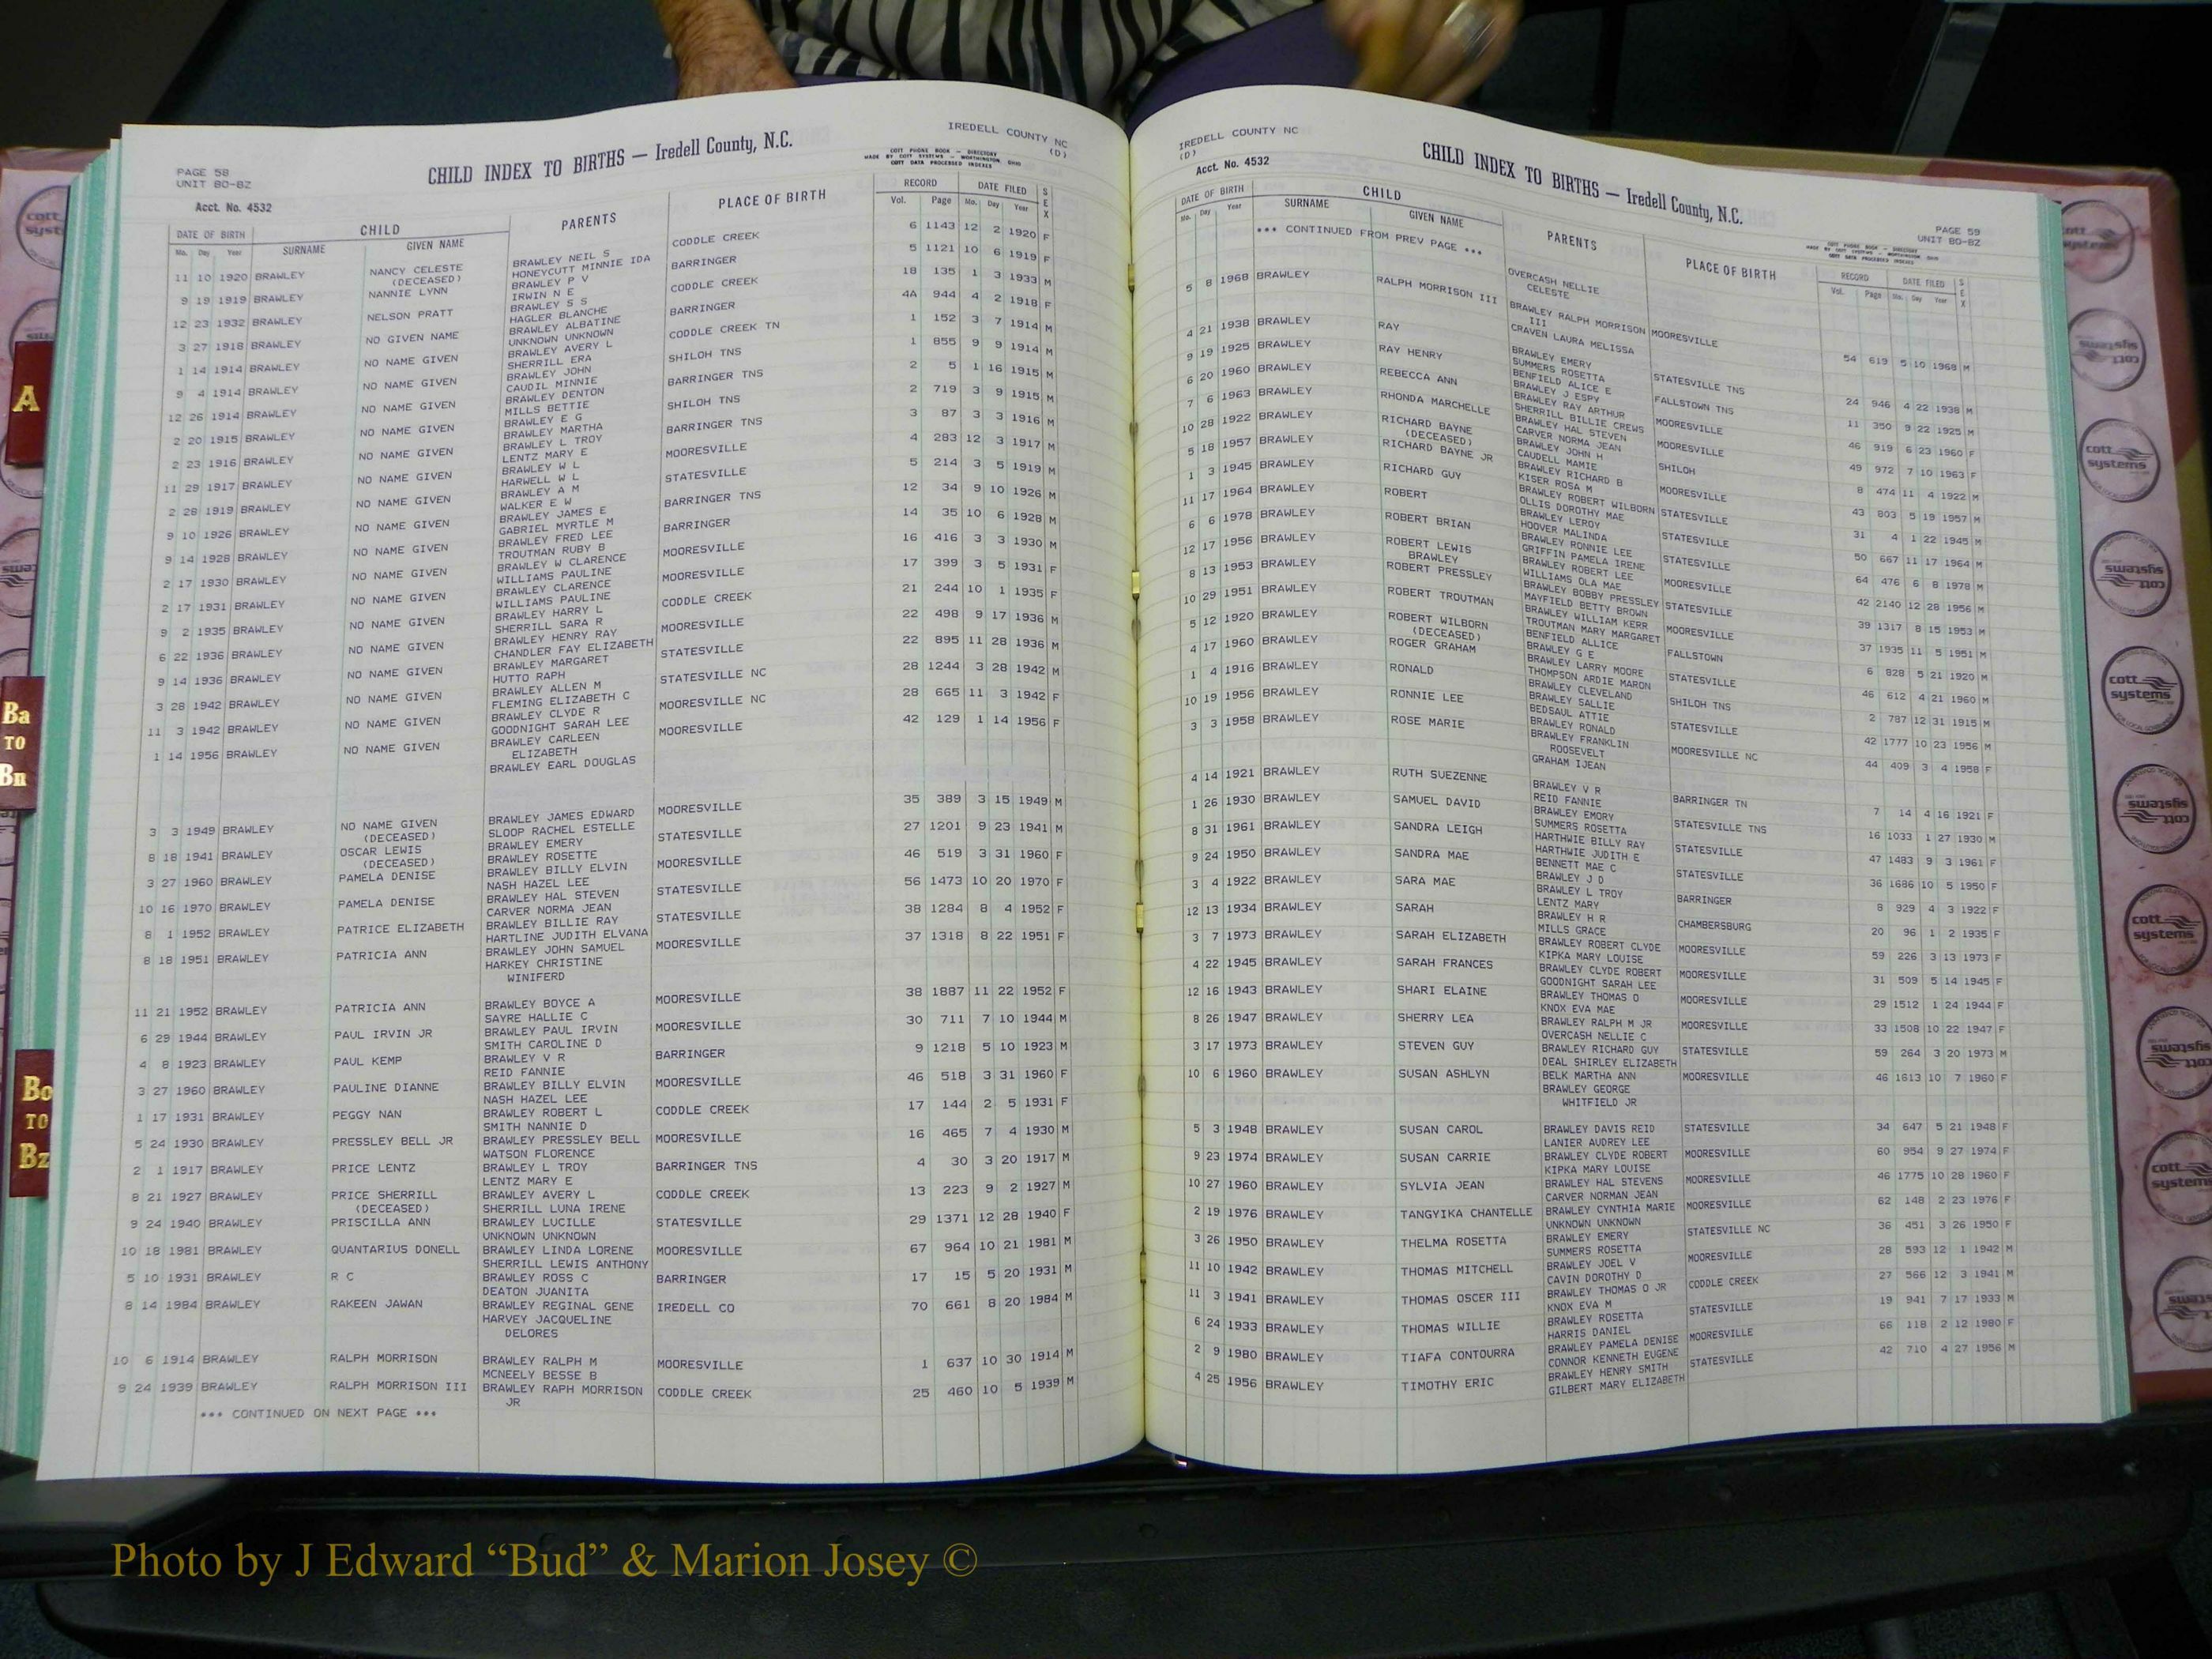 IREDELL COUNTY NC
(D)
PAGE 58
UNIT BO-BZ
CHILD INDEX TO BIRTHS — Iredell County, N.C.
COTT PHONE BOOK — DIRECTORY
MADE BY COTT SYSTEMS — WORTHINGTON, OHIO
COTT DATA PROCESSED INDEXES
Acct. No. 4532
DATE OF BIRTH CHILD PARENTS PLACE OF BIRTH RECORD DATE FILED SEX
Mo. Day Year SURNAME GIVEN NAME Vol. Page Mo. Day Year
11 10 1920 BRAWLEY NANCY CELESTE BRAWLEY NEIL S CODDLE CREEK 6 1143 12 2 1920 F
(DECEASED) HONEYCUTT MINNIE IDA
9 19 1919 BRAWLEY NANNIE LYNN BRAWLEY P V BARRINGER 5 1121 10 6 1919 F
IRWIN N E
12 23 1932 BRAWLEY NELSON PRATT BRAWLEY S S CODDLE CREEK 18 135 1 3 1933 M
HAGLER BLANCHE
3 27 1918 BRAWLEY NO GIVEN NAME BRAWLEY ALBATINE BARRINGER 4A 944 4 2 1918 F
UNKNOWN UNKNOWN
1 14 1914 BRAWLEY NO NAME GIVEN BRAWLEY AVERY L CODDLE CREEK TN 1 152 3 7 1914 M
SHERRILL ERA
9 4 1914 BRAWLEY NO NAME GIVEN BRAWLEY JOHN SHILOH TNS 1 855 9 9 1914 M
CAUDIL MINNIE
12 26 1914 BRAWLEY NO NAME GIVEN BRAWLEY DENTON BARRINGER TNS 2 5 1 16 1915 M
MILLS BETTIE
2 20 1915 BRAWLEY NO NAME GIVEN BRAWLEY E G SHILOH TNS 2 719 3 9 1915 M
BRAWLEY MARTHA
2 23 1916 BRAWLEY NO NAME GIVEN BRAWLEY L TROY BARRINGER TNS 3 87 3 3 1916 M
LENTZ MARY E
11 29 1917 BRAWLEY NO NAME GIVEN BRAWLEY W L MOORESVILLE 4 283 12 3 1917 M
HARWELL W L
2 28 1919 BRAWLEY NO NAME GIVEN BRAWLEY A M STATESVILLE 5 214 3 5 1919 M
WALKER E W
9 10 1926 BRAWLEY NO NAME GIVEN BRAWLEY JAMES E BARRINGER TNS 12 34 9 10 1926 M
GABRIEL MYRTLE M
9 14 1928 BRAWLEY NO NAME GIVEN BRAWLEY FRED LEE BARRINGER 14 35 10 6 1928 M
TROUTMAN RUBY B
2 17 1930 BRAWLEY NO NAME GIVEN BRAWLEY W CLARENCE MOORESVILLE 16 416 3 3 1930 M
WILLIAMS PAULINE
2 17 1931 BRAWLEY NO NAME GIVEN BRAWLEY CLARENCE MOORESVILLE 17 399 3 5 1931 F
WILLIAMS PAULINE
9 2 1935 BRAWLEY NO NAME GIVEN BRAWLEY HARRY L CODDLE CREEK 21 244 10 1 1935 F
SHERRILL SARA R
6 22 1936 BRAWLEY NO NAME GIVEN BRAWLEY HENRY RAY MOORESVILLE 22 498 9 17 1936 M
CHANDLER FAY ELIZABETH
9 14 1936 BRAWLEY NO NAME GIVEN BRAWLEY MARGARET STATESVILLE 22 895 11 28 1936 M
HUTTO RAPH
3 28 1942 BRAWLEY NO NAME GIVEN BRAWLEY ALLEN M STATESVILLE NC 28 1244 3 28 1942 M
FLEMING ELIZABETH C
11 3 1942 BRAWLEY NO NAME GIVEN BRAWLEY CLYDE R MOORESVILLE NC 28 665 11 3 1942 F
GOODNIGHT SARAH LEE
1 14 1956 BRAWLEY NO NAME GIVEN BRAWLEY CARLEEN MOORESVILLE 42 129 1 14 1956 F
ELIZABETH
BRAWLEY EARL DOUGLAS
3 3 1949 BRAWLEY NO NAME GIVEN BRAWLEY JAMES EDWARD MOORESVILLE 35 389 3 15 1949 M
(DECEASED) SLOOP RACHEL ESTELLE
8 18 1941 BRAWLEY OSCAR LEWIS BRAWLEY EMERY STATESVILLE 27 1201 9 23 1941 M
(DECEASED) BRAWLEY ROSETTE
3 27 1960 BRAWLEY PAMELA DENISE BRAWLEY BILLY ELVIN MOORESVILLE 46 519 3 31 1960 F
NASH HAZEL LEE
10 16 1970 BRAWLEY PAMELA DENISE BRAWLEY HAL STEVEN STATESVILLE 56 1473 10 20 1970 F
CARVER NORMA JEAN
8 1 1952 BRAWLEY PATRICE ELIZABETH BRAWLEY BILLIE RAY STATESVILLE 38 1284 8 4 1952 F
HARTLINE JUDITH ELVANA
8 18 1951 BRAWLEY PATRICIA ANN BRAWLEY JOHN SAMUEL MOORESVILLE 37 1318 8 22 1951 F
HARKEY CHRISTINE
WINIFERD
11 21 1952 BRAWLEY PATRICIA ANN BRAWLEY BOYCE A MOORESVILLE 38 1887 11 22 1952 F
SAYRE HALLIE C
6 29 1944 BRAWLEY PAUL IRVIN JR BRAWLEY PAUL IRVIN MOORESVILLE 30 711 7 10 1944 M
SMITH CAROLINE D
4 8 1923 BRAWLEY PAUL KEMP BRAWLEY V R BARRINGER 9 1218 5 10 1923 M
REID FANNIE
3 27 1960 BRAWLEY PAULINE DIANNE BRAWLEY BILLY ELVIN MOORESVILLE 46 518 3 31 1960 F
NASH HAZEL LEE
1 17 1931 BRAWLEY PEGGY NAN BRAWLEY ROBERT L CODDLE CREEK 17 144 2 5 1931 F
SMITH NANNIE D
5 24 1930 BRAWLEY PRESSLEY BELL JR BRAWLEY PRESSLEY BELL MOORESVILLE 16 465 7 4 1930 M
WATSON FLORENCE
2 1 1917 BRAWLEY PRICE LENTZ BRAWLEY L TROY BARRINGER TNS 4 30 3 20 1917 M
LENTZ MARY E
8 21 1927 BRAWLEY PRICE SHERRILL BRAWLEY AVERY L CODDLE CREEK 13 223 9 2 1927 M
(DECEASED) SHERRILL LUNA IRENE
9 24 1940 BRAWLEY PRISCILLA ANN BRAWLEY LUCILLE STATESVILLE 29 1371 12 28 1940 F
UNKNOWN UNKNOWN
10 18 1981 BRAWLEY QUANTARIUS DONELL BRAWLEY LINDA LORENE MOORESVILLE 67 964 10 21 1981 M
SHERRILL LEWIS ANTHONY
5 10 1931 BRAWLEY R C BRAWLEY ROSS C BARRINGER 17 15 5 20 1931 M
DEATON JUANITA
8 14 1984 BRAWLEY RAKEEN JAWAN BRAWLEY REGINAL GENE IREDELL CO 70 661 8 20 1984 M
HARVEY JACQUELINE
DELORES
10 6 1914 BRAWLEY RALPH MORRISON BRAWLEY RALPH M MOORESVILLE 1 637 10 30 1914 M
MCNEELY BESSE B
9 24 1939 BRAWLEY RALPH MORRISON III BRAWLEY RAPH MORRISON CODDLE CREEK 25 460 10 5 1939 M
JR
*** CONTINUED ON NEXT PAGE ***
IREDELL COUNTY NC
(D)
Acct. No. 4532
CHILD INDEX TO BIRTHS — Iredell County, N.C.
PAGE 59
UNIT BO-BZ
COTT PHONE BOOK — DIRECTORY
MADE BY COTT SYSTEMS — WORTHINGTON, OHIO
COTT DATA PROCESSED INDEXES
DATE OF BIRTH CHILD PARENTS PLACE OF BIRTH RECORD DATE FILED SEX
Mo. Day Year SURNAME GIVEN NAME Vol. Page Mo. Day Year
*** CONTINUED FROM PREV PAGE ***
OVERCASH NELLIE
CELESTE
5 8 1968 BRAWLEY RALPH MORRISON III BRAWLEY RALPH MORRISON MOORESVILLE 54 619 5 10 1968 M
III
CRAVEN LAURA MELISSA
4 21 1938 BRAWLEY RAY BRAWLEY EMERY STATESVILLE TNS 24 946 4 22 1938 M
SUMMERS ROSETTA
9 19 1925 BRAWLEY RAY HENRY BENFIELD ALICE E FALLSTOWN TNS 11 350 9 22 1925 M
BRAWLEY J ESPY
6 20 1960 BRAWLEY REBECCA ANN BRAWLEY RAY ARTHUR MOORESVILLE 46 919 6 23 1960 F
SHERRILL BILLIE CREWS
7 6 1963 BRAWLEY RHONDA MARCHELLE BRAWLEY HAL STEVEN MOORESVILLE 49 972 7 10 1963 F
CARVER NORMA JEAN
10 28 1922 BRAWLEY RICHARD BAYNE BRAWLEY JOHN H SHILOH 8 474 11 4 1922 M
(DECEASED) CAUDELL MAMIE
5 18 1957 BRAWLEY RICHARD BAYNE JR BRAWLEY RICHARD B MOORESVILLE 43 803 5 19 1957 M
KISER ROSA M
1 3 1945 BRAWLEY RICHARD GUY BRAWLEY ROBERT WILBORN STATESVILLE 31 4 1 22 1945 M
OLLIS DOROTHY MAE
11 17 1964 BRAWLEY ROBERT BRAWLEY LEROY STATESVILLE 50 667 11 17 1964 M
HOOVER MALINDA
6 6 1978 BRAWLEY ROBERT BRIAN BRAWLEY RONNIE LEE STATESVILLE 64 476 6 8 1978 M
GRIFFIN PAMELA IRENE
12 17 1956 BRAWLEY ROBERT LEWIS BRAWLEY ROBERT LEE MOORESVILLE 42 2140 12 28 1956 M
BRAWLEY WILLIAMS OLA MAE
8 13 1953 BRAWLEY ROBERT PRESSLEY BRAWLEY BOBBY PRESSLEY STATESVILLE 39 1317 8 15 1953 M
MAYFIELD BETTY BROWN
10 29 1951 BRAWLEY ROBERT TROUTMAN BRAWLEY WILLIAM KERR MOORESVILLE 37 1935 11 5 1951 M
TROUTMAN MARY MARGARET
5 12 1920 BRAWLEY ROBERT WILBORN BENFIELD ALLICE FALLSTOWN 6 828 5 21 1920 M
(DECEASED) BRAWLEY G E
4 17 1960 BRAWLEY ROGER GRAHAM BRAWLEY LARRY MOORE STATESVILLE 46 612 4 21 1960 M
THOMPSON ARDIE MARON
1 4 1916 BRAWLEY RONALD BRAWLEY CLEVELAND SHILOH TNS 2 787 12 31 1915 M
BRAWLEY SALLIE
10 19 1956 BRAWLEY RONNIE LEE BEDSAUL ATTIE STATESVILLE 42 1777 10 23 1956 M
BRAWLEY RONALD
3 3 1958 BRAWLEY ROSE MARIE BRAWLEY FRANKLIN MOORESVILLE NC 44 409 3 4 1958 F
ROOSEVELT
GRAHAM IJEAN
4 14 1921 BRAWLEY RUTH SUEZENNE BRAWLEY V R BARRINGER TN 7 14 4 16 1921 F
REID FANNIE
1 26 1930 BRAWLEY SAMUEL DAVID BRAWLEY EMORY STATESVILLE TNS 16 1033 1 27 1930 M
SUMMERS ROSETTA
8 31 1961 BRAWLEY SANDRA LEIGH HARTHWIE BILLY RAY STATESVILLE 47 1483 9 3 1961 F
HARTHWIE JUDITH E
9 24 1950 BRAWLEY SANDRA MAE BENNETT MAE C STATESVILLE 36 1686 10 5 1950 F
BRAWLEY J D
3 4 1922 BRAWLEY SARA MAE BRAWLEY L TROY BARRINGER 8 929 4 3 1922 F
LENTZ MARY
12 13 1934 BRAWLEY SARAH BRAWLEY H R CHAMBERSBURG 20 96 1 2 1935 F
MILLS GRACE
3 7 1973 BRAWLEY SARAH ELIZABETH BRAWLEY ROBERT CLYDE MOORESVILLE 59 226 3 13 1973 F
KIPKA MARY LOUISE
4 22 1945 BRAWLEY SARAH FRANCES BRAWLEY CLYDE ROBERT MOORESVILLE 31 509 5 14 1945 F
GOODNIGHT SARAH LEE
12 16 1943 BRAWLEY SHARI ELAINE BRAWLEY THOMAS O MOORESVILLE 29 1512 1 24 1944 F
KNOX EVA MAE
8 26 1947 BRAWLEY SHERRY LEA BRAWLEY RALPH M JR MOORESVILLE 33 1508 10 22 1947 F
OVERCASH NELLIE C
3 17 1973 BRAWLEY STEVEN GUY BRAWLEY RICHARD GUY STATESVILLE 59 264 3 20 1973 M
DEAL SHIRLEY ELIZABETH
10 6 1960 BRAWLEY SUSAN ASHLYN BELK MARTHA ANN MOORESVILLE 46 1613 10 7 1960 F
BRAWLEY GEORGE
WHITFIELD JR
5 3 1948 BRAWLEY SUSAN CAROL BRAWLEY DAVIS REID STATESVILLE 34 647 5 21 1948 F
LANIER AUDREY LEE
9 23 1974 BRAWLEY SUSAN CARRIE BRAWLEY CLYDE ROBERT MOORESVILLE 60 954 9 27 1974 F
KIPKA MARY LOUISE
10 27 1960 BRAWLEY SYLVIA JEAN BRAWLEY HAL STEVENS MOORESVILLE 46 1775 10 28 1960 F
CARVER NORMAN JEAN
2 19 1976 BRAWLEY TANGYIKA CHANTELLE BRAWLEY CYNTHIA MARIE MOORESVILLE 62 148 2 23 1976 F
UNKNOWN UNKNOWN
3 26 1950 BRAWLEY THELMA ROSETTA BRAWLEY EMERY STATESVILLE NC 36 451 3 26 1950 F
SUMMERS ROSETTA
11 10 1942 BRAWLEY THOMAS MITCHELL BRAWLEY JOEL V MOORESVILLE 28 593 12 1 1942 M
CAVIN DOROTHY D
11 3 1941 BRAWLEY THOMAS OSCER III BRAWLEY THOMAS O JR CODDLE CREEK 27 566 12 3 1941 M
KNOX EVA M
6 24 1933 BRAWLEY THOMAS WILLIE BRAWLEY ROSETTA STATESVILLE 19 941 7 17 1933 M
HARRIS DANIEL
2 9 1980 BRAWLEY TIAFA CONTOURRA BRAWLEY PAMELA DENISE MOORESVILLE 66 118 2 12 1980 F
CONNOR KENNETH EUGENE
4 25 1956 BRAWLEY TIMOTHY ERIC BRAWLEY HENRY SMITH STATESVILLE 42 710 4 27 1956 M
GILBERT MARY ELIZABETH
A
Ba
TO
Bn
Bo
TO
Bz
cott
systems
Photo by J Edward “Bud” & Marion Josey ©